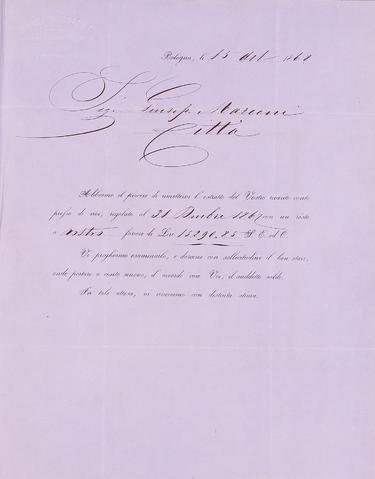 Bologna, li 15 del 1868
Sig. Giusep. Marconi
Città
Abbiamo il piacere di rimettervi l'estratto del Vostro avente conto
presso di noi, regolato al 31 Dcmbre 1867 con un resto
a nostro favore di Lire 15290.25 S. E. ed O.
Vi preghiamo esaminarlo, e darcene con sollecitudine il ben stare,
onde portare a conto nuovo, d'accordo con Voi, il suddetto saldo.
In tale attesa, vi riveriamo con distinta stima.